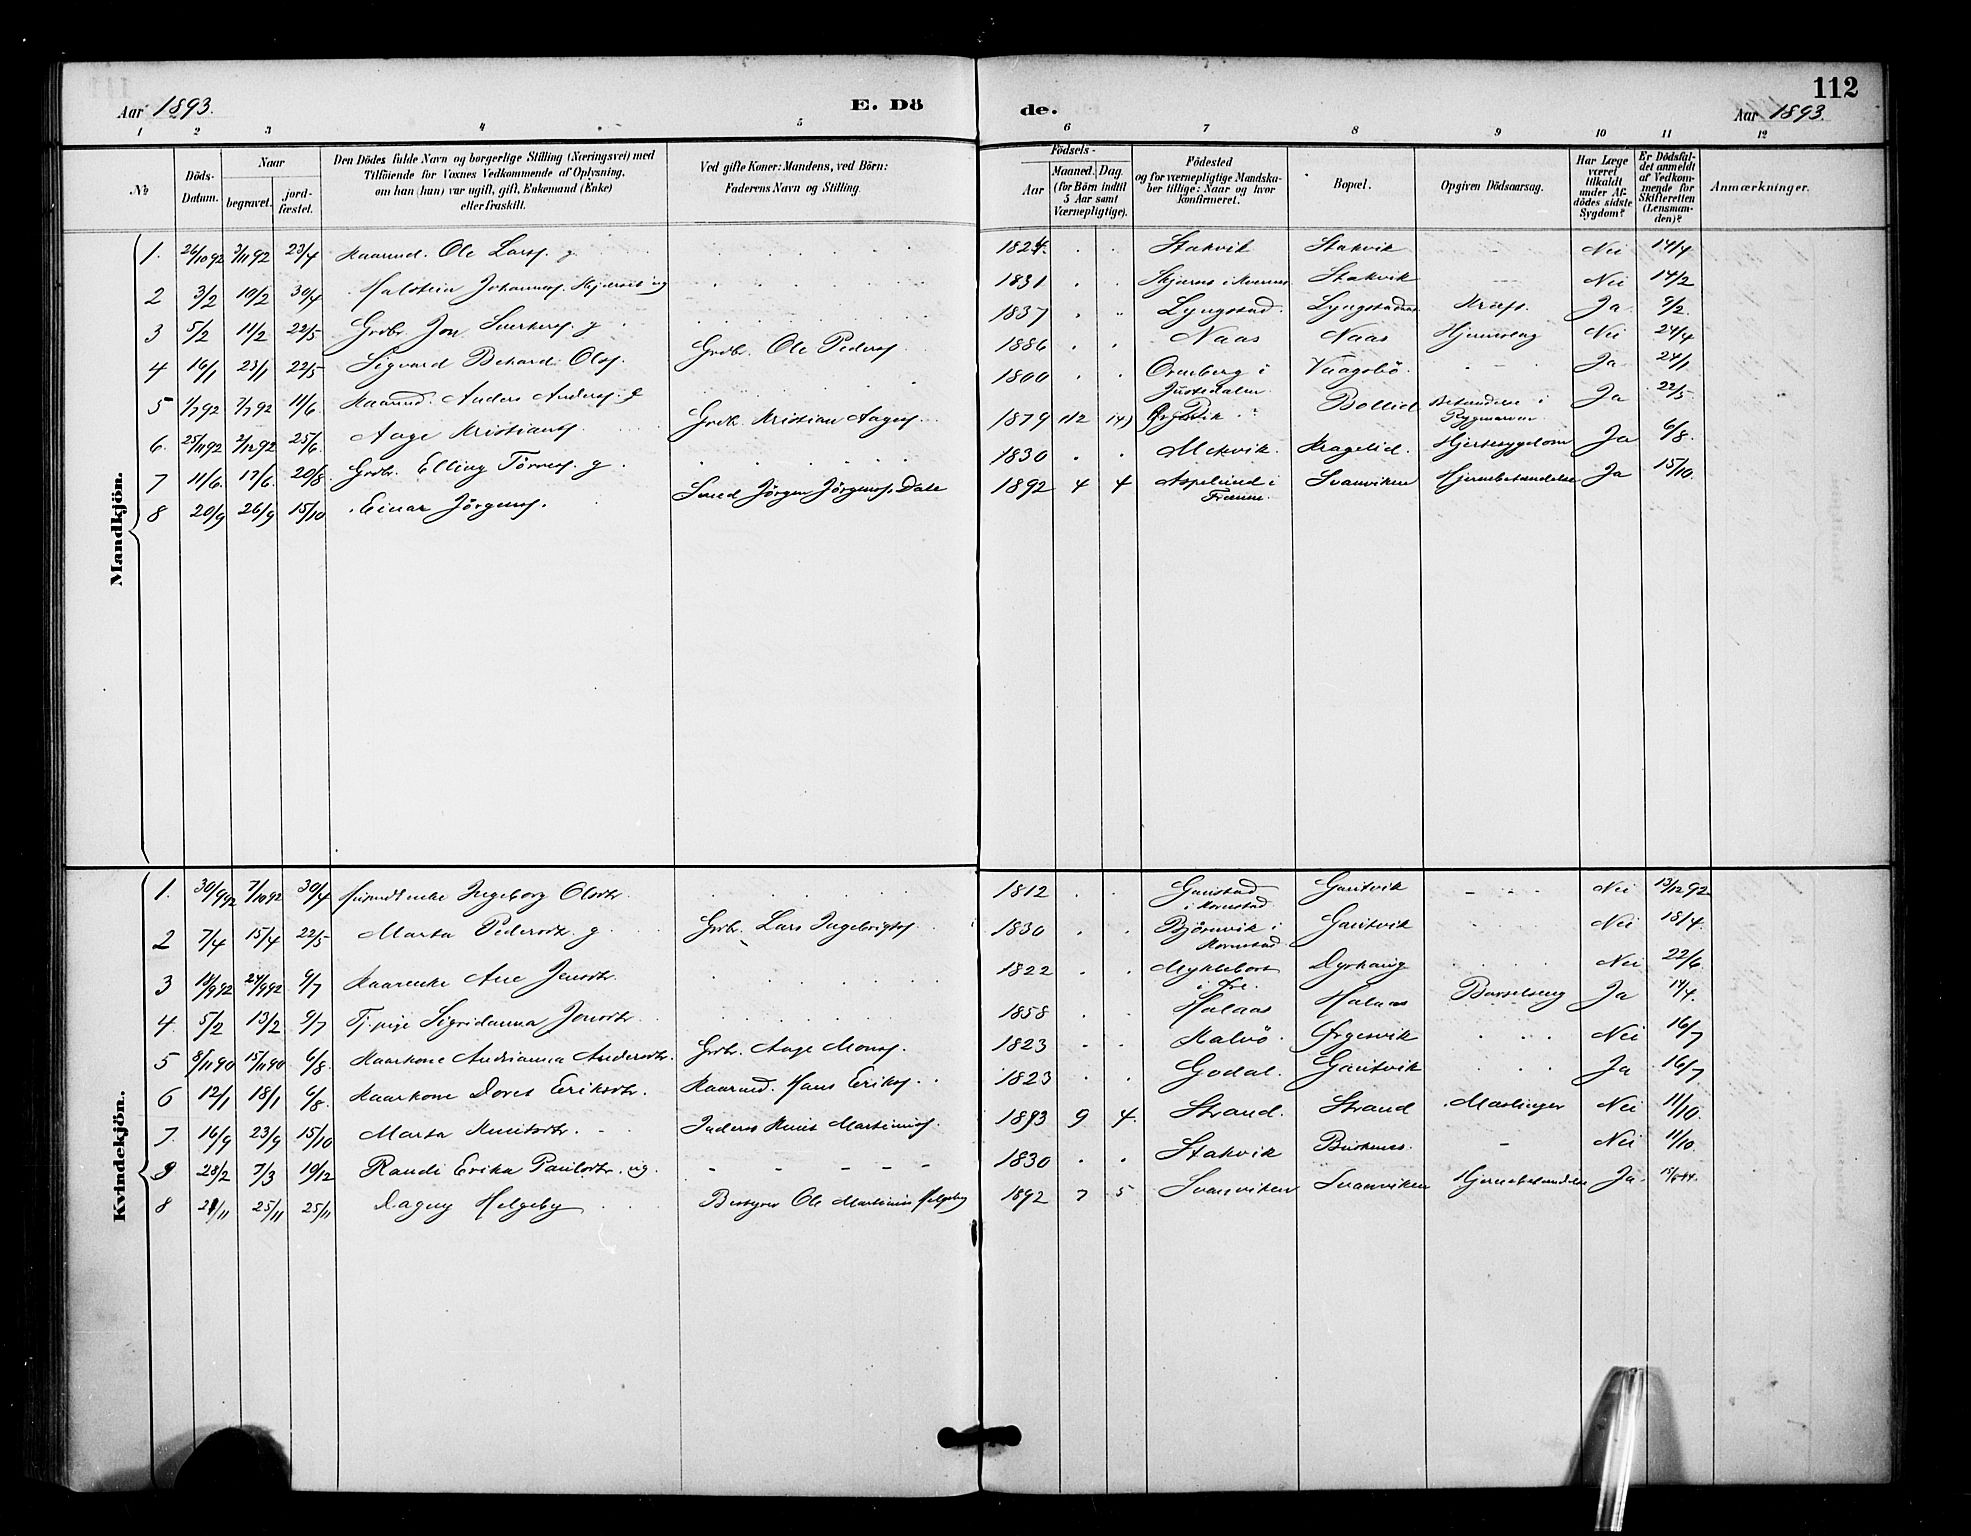 112
Aar 1893. E. Dö de. Aar 1893.
1 2 3 4 5 6 7 8 9 10 11 12
No
Döds-Datum.
Naar
begravet.
jord-fæstet.
Den Dödes fulde Navn og borgerlige Stilling (Næringsvei) med
Tilföiende for Voxnes Vedkommende af Oplysning,
om han (hun) var ugift, gift, Enkemand (Enke)
eller fraskilt.
Ved gifte Koner: Mandens, ved Börn:
Faderens Navn og Stilling.
Födsels-
Aar
Maaned. Dag.
(for Börn indtil
5 Aar samt
Værnepligtige).
Födested
og for værnepligtige Mandska-
ber tillige: Naar og hvor
konfirmeret.
Bopæl.
Opgiven Dödsaarsag.
Har Læge
været
tilkaldt
under Af-
dödes sidste
Sygdom?
Er Dödsfal-
det anmeldt
af Vedkom-
mende for
Skifteretten
(Lensman-
den)?
Anmærkninger.
Mandkjön.
1. 26/10 92 3/11 92 23/4 Kaarmd. Ole Larss. g 1824. Stakvik Stakvik Nei 14/4
2 3/2 10/2 30/4 Halstein Johanness. ug 1831 Stakvik Nei 14/2
3 5/2 11/2 22/5 Grdbr. Jon Sverkers. g 1837 Lyngstad. Kræft. Ja 7/2
4 16/1 23/1 22/5 Sigvard Behard Ols. Grdbr. Ole Peders. 1886 Naas Naas Nei 24/4
5 1/7 92 7/7 92 11/6 Kaarmd. Anders Anders. g 1800 Ormberg i Justedalen Vaagsbö. Ja 24/1
6. 25/11 92 2/12 92 25/6 Aage Kristians. Kristian Aages. 1879 Bollid Betændelse i Rygmarven Ja 22/5
7 11/6. 17/6 20/8 Grdbr. Elling Törress. g. 1830 Mekvik. Kragelid. Hjertesygdom Ja 6/8.
8 20/9 26/9 15/10 Einar Jörgens. Smed Jörgen Jörgens. Dale 1892 4 4 Aspelund i Svanviken Hjernebetændelse Ja 15/10.
Kvindekjön.
1. 30/9 92 7/10 92 30/4 Ingeborg Olsdtr. 1812 Gaustad i Kornstad Gautvik Nei 13/12 92
2 7/4 15/4 22/5 Marta Pedersdtr. g Grdbr. Lars Ingebrigts. 1830 Björnvik i Kornstad Gautvik Nei 18/4.
3 18/9 92 24/9 92 9/7 Kaarenke Ane Jensdtr. 1822 Myklebost i Dyrhaug Nei 22/6.
4. 5/2 13/2 9/7 Tj. pige Sigridanna Jonsdtr. 1858 Halaas Halaas Barselseng Ja 14/4.
5 8/11 90 15/11 90 6/8. Kaarkone Andrianna Andersdtr. Grdbr. Aage Mons. 1823 Kalvö. Ørgesvik Nei 16/7
6 12/1 18/1 6/8. Kaarkone Doret Eriksdtr. Kaarmd. Hans Eriks. 1823 Godal. Gautvik Ja 16/7
7. 16/9 23/9 15/10 Marta Knutsdtr. Inderst Knut Martinius. 1893 9 4. Strand. Strand Mæslinger Nei 11/10.
9 28/2 7/3 19/12 Randi Erika Paulsdtr. ug. 1830 Stakvik Nei 11/10.
8 21/11 25/11 25/11 Dagny Helgeby Bestyrer Ole Martinius Helgeby 1892 7 5 Svanviken Svanviken Hjernebetændelse Ja.